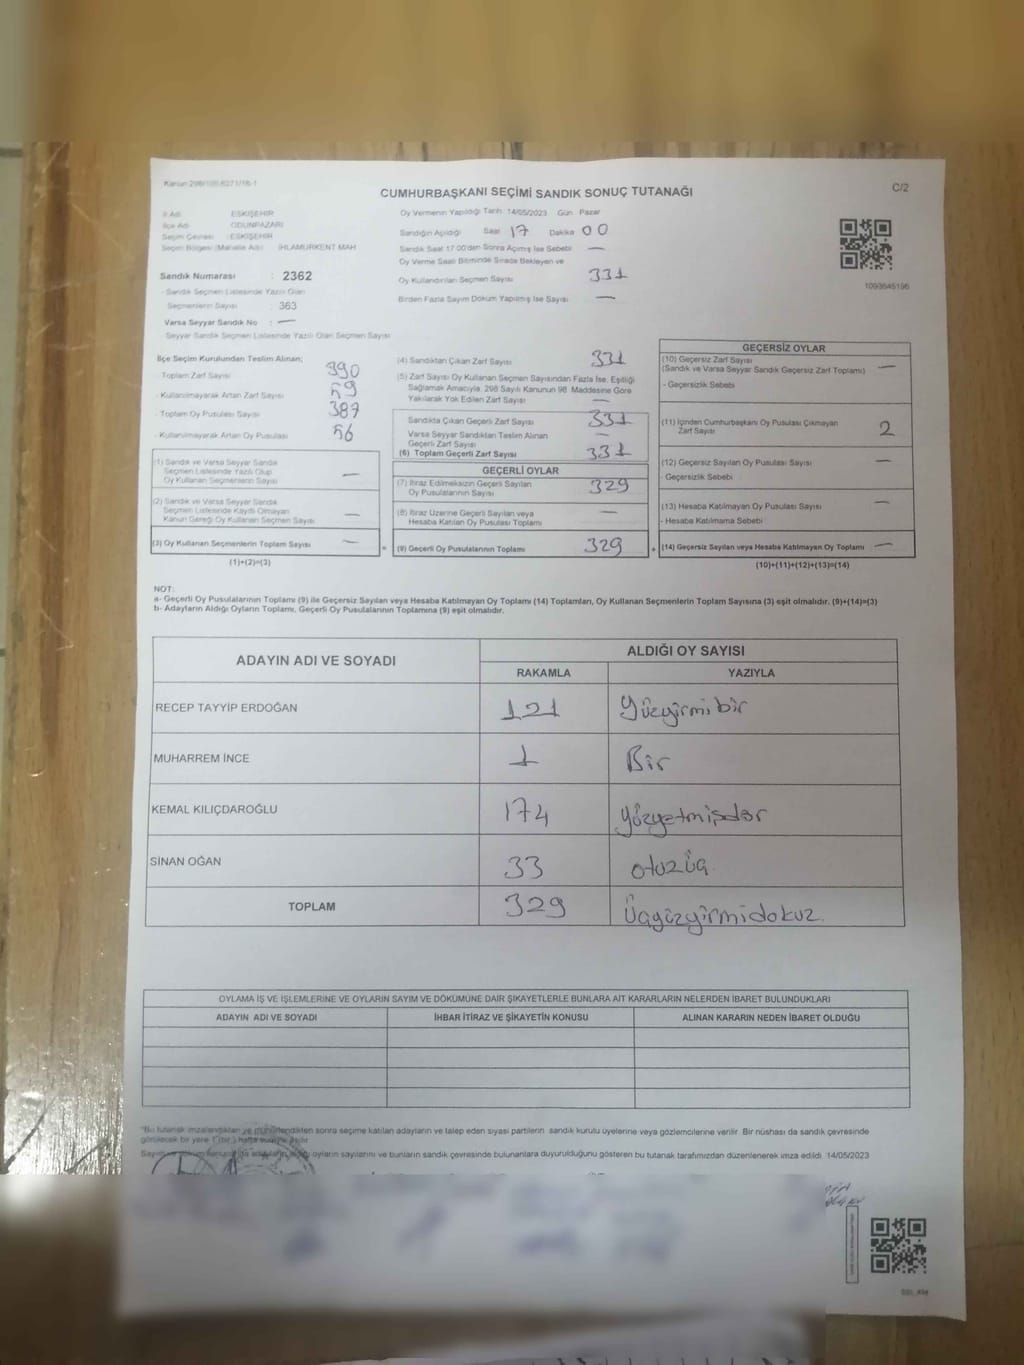 CUMHURBAŞKANI SEÇİMİ SANDIK SONUÇ TUTANAĞI
C/2
İl Adı : ESKİŞEHİR
İlçe Adı : ODUNPAZARI
Seçim Çevresi : ESKİŞEHİR
Seçim Bölgesi (Mahalle Adı) : IHLAMURKENT MAH
Sandık Numarası : 2362
- Sandık Seçmen Listesinde Yazılı Olan
Seçmenlerin Sayısı : 363
Varsa Seyyar Sandık No : —
- Seyyar Sandık Seçmen Listesinde Yazılı Olan Seçmen Sayısı
Oy Vermenin Yapıldığı Tarih 14/05/2023 Gün Pazar
Sandığın Açıldığı Saat 17 Dakika 00
Sandık Saat 17:00'den Sonra Açılmış İse Sebebi —
Oy Verme Saati Bitiminde Sırada Bekleyen ve
Oy Kullandırılan Seçmen Sayısı 331
Birden Fazla Sayım Döküm Yapılmış İse Sayısı —
1093645196
İlçe Seçim Kurulundan Teslim Alınan;
- Toplam Zarf Sayısı 390
- Kullanılmayarak Artan Zarf Sayısı 59
- Toplam Oy Pusulası Sayısı 387
- Kullanılmayarak Artan Oy Pusulası 56
(1) Sandık ve Varsa Seyyar Sandık
Seçmen Listesinde Yazılı Olup
Oy Kullanan Seçmenlerin Sayısı —
(2) Sandık ve Varsa Seyyar Sandık
Seçmen Listesinde Kayıtlı Olmayan
Kanun Gereği Oy Kullanan Seçmen Sayısı —
(3) Oy Kullanan Seçmenlerin Toplam Sayısı —
(1)+(2)=(3)
(4) Sandıktan Çıkan Zarf Sayısı 331
(5) Zarf Sayısı Oy Kullanan Seçmen Sayısından Fazla İse, Eşitliği
Sağlamak Amacıyla, 298 Sayılı Kanunun 98. Maddesine Göre
Yakılarak Yok Edilen Zarf Sayısı —
Sandıkta Çıkan Geçerli Zarf Sayısı 331
Varsa Seyyar Sandıktan Teslim Alınan
Geçerli Zarf Sayısı —
(6) Toplam Geçerli Zarf Sayısı 331
GEÇERLİ OYLAR
(7) İtiraz Edilmeksizin Geçerli Sayılan
Oy Pusulalarının Sayısı 329
(8) İtiraz Üzerine Geçerli Sayılan veya
Hesaba Katılan Oy Pusulası Toplamı —
= (9) Geçerli Oy Pusulalarının Toplamı 329 +
GEÇERSİZ OYLAR
(10) Geçersiz Zarf Sayısı
(Sandık ve Varsa Seyyar Sandık Geçersiz Zarf Toplamı) —
- Geçersizlik Sebebi
(11) İçinden Cumhurbaşkanı Oy Pusulası Çıkmayan
Zarf Sayısı 2
(12) Geçersiz Sayılan Oy Pusulası Sayısı —
- Geçersizlik Sebebi
(13) Hesaba Katılmayan Oy Pusulası Sayısı —
- Hesaba Katılmama Sebebi
(14) Geçersiz Sayılan veya Hesaba Katılmayan Oy Toplamı —
(10)+(11)+(12)+(13)=(14)
NOT:
a- Geçerli Oy Pusulalarının Toplamı (9) ile Geçersiz Sayılan veya Hesaba Katılmayan Oy Toplamı (14) Toplamları, Oy Kullanan Seçmenlerin Toplam Sayısına (3) eşit olmalıdır. (9)+(14)=(3)
b- Adayların Aldığı Oyların Toplamı, Geçerli Oy Pusulalarının Toplamına (9) eşit olmalıdır.
ADAYIN ADI VE SOYADI
ALDIĞI OY SAYISI
RAKAMLA YAZIYLA
RECEP TAYYİP ERDOĞAN 121 Yüzyirmibir
MUHARREM İNCE 1 Bir
KEMAL KILIÇDAROĞLU 174 Yüzyetmişdör
SİNAN OĞAN 33 otuzüç
TOPLAM 329 Üçyüzyirmidokuz.
OYLAMA İŞ VE İŞLEMLERİNE VE OYLARIN SAYIM VE DÖKÜMÜNE DAİR ŞİKAYETLERLE BUNLARA AİT KARARLARIN NELERDEN İBARET BULUNDUKLARI
ADAYIN ADI VE SOYADI İHBAR İTİRAZ VE ŞİKAYETİN KONUSU ALINAN KARARIN NEDEN İBARET OLDUĞU
*Bu tutanak imzalandıktan ve mühürlendikten sonra seçime katılan adayların ve talep eden siyasi partilerin sandık kurulu üyelerine veya gözlemcilerine verilir. Bir nüshası da sandık çevresinde
görülecek bir yere 1 (bir) hafta süreyle asılır.
oyların sayılarını ve bunların sandık çevresinde bulunanlara duyurulduğunu gösteren bu tutanak tarafımızdan düzenlenerek imza edildi. 14/05/2023